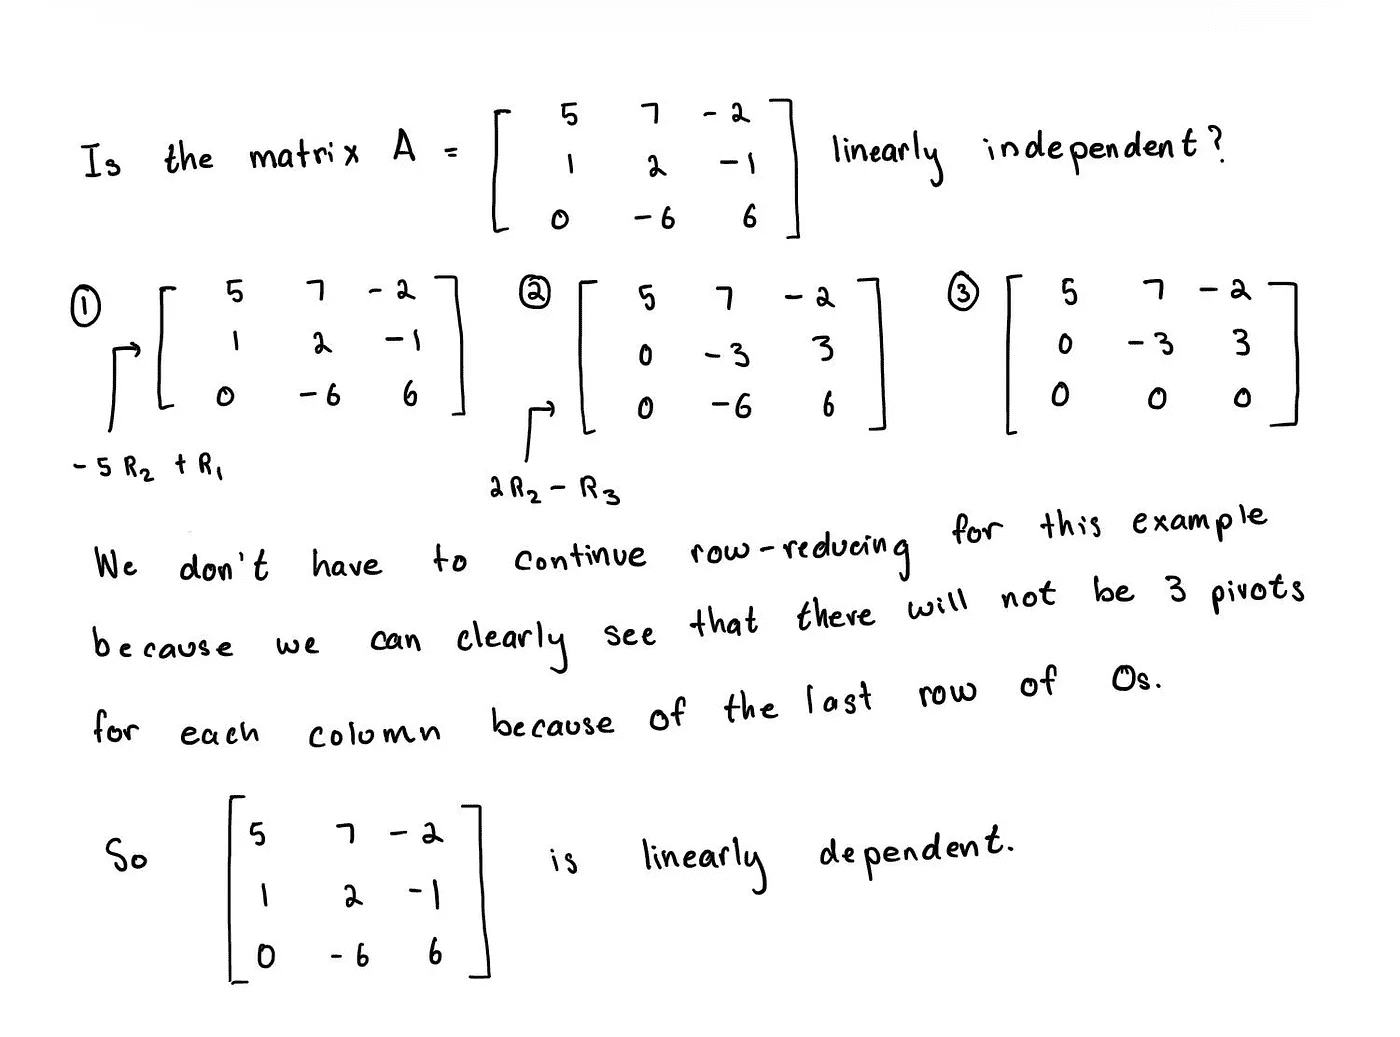 Is the matrix A = [ 5 7 -2 ; 1 2 -1 ; 0 -6 6 ] linearly independent?
① [ 5 7 -2 ; 1 2 -1 ; 0 -6 6 ] ② [ 5 7 -2 ; 0 -3 3 ; 0 -6 6 ] ③ [ 5 7 -2 ; 0 -3 3 ; 0 0 0 ]
-5 R₂ + R₁
2R₂ - R₃
We don't have to continue row-reducing for this example
because we can clearly see that there will not be 3 pivots
for each column because of the last row of 0s.
So [ 5 7 -2 ; 1 2 -1 ; 0 -6 6 ] is linearly dependent.